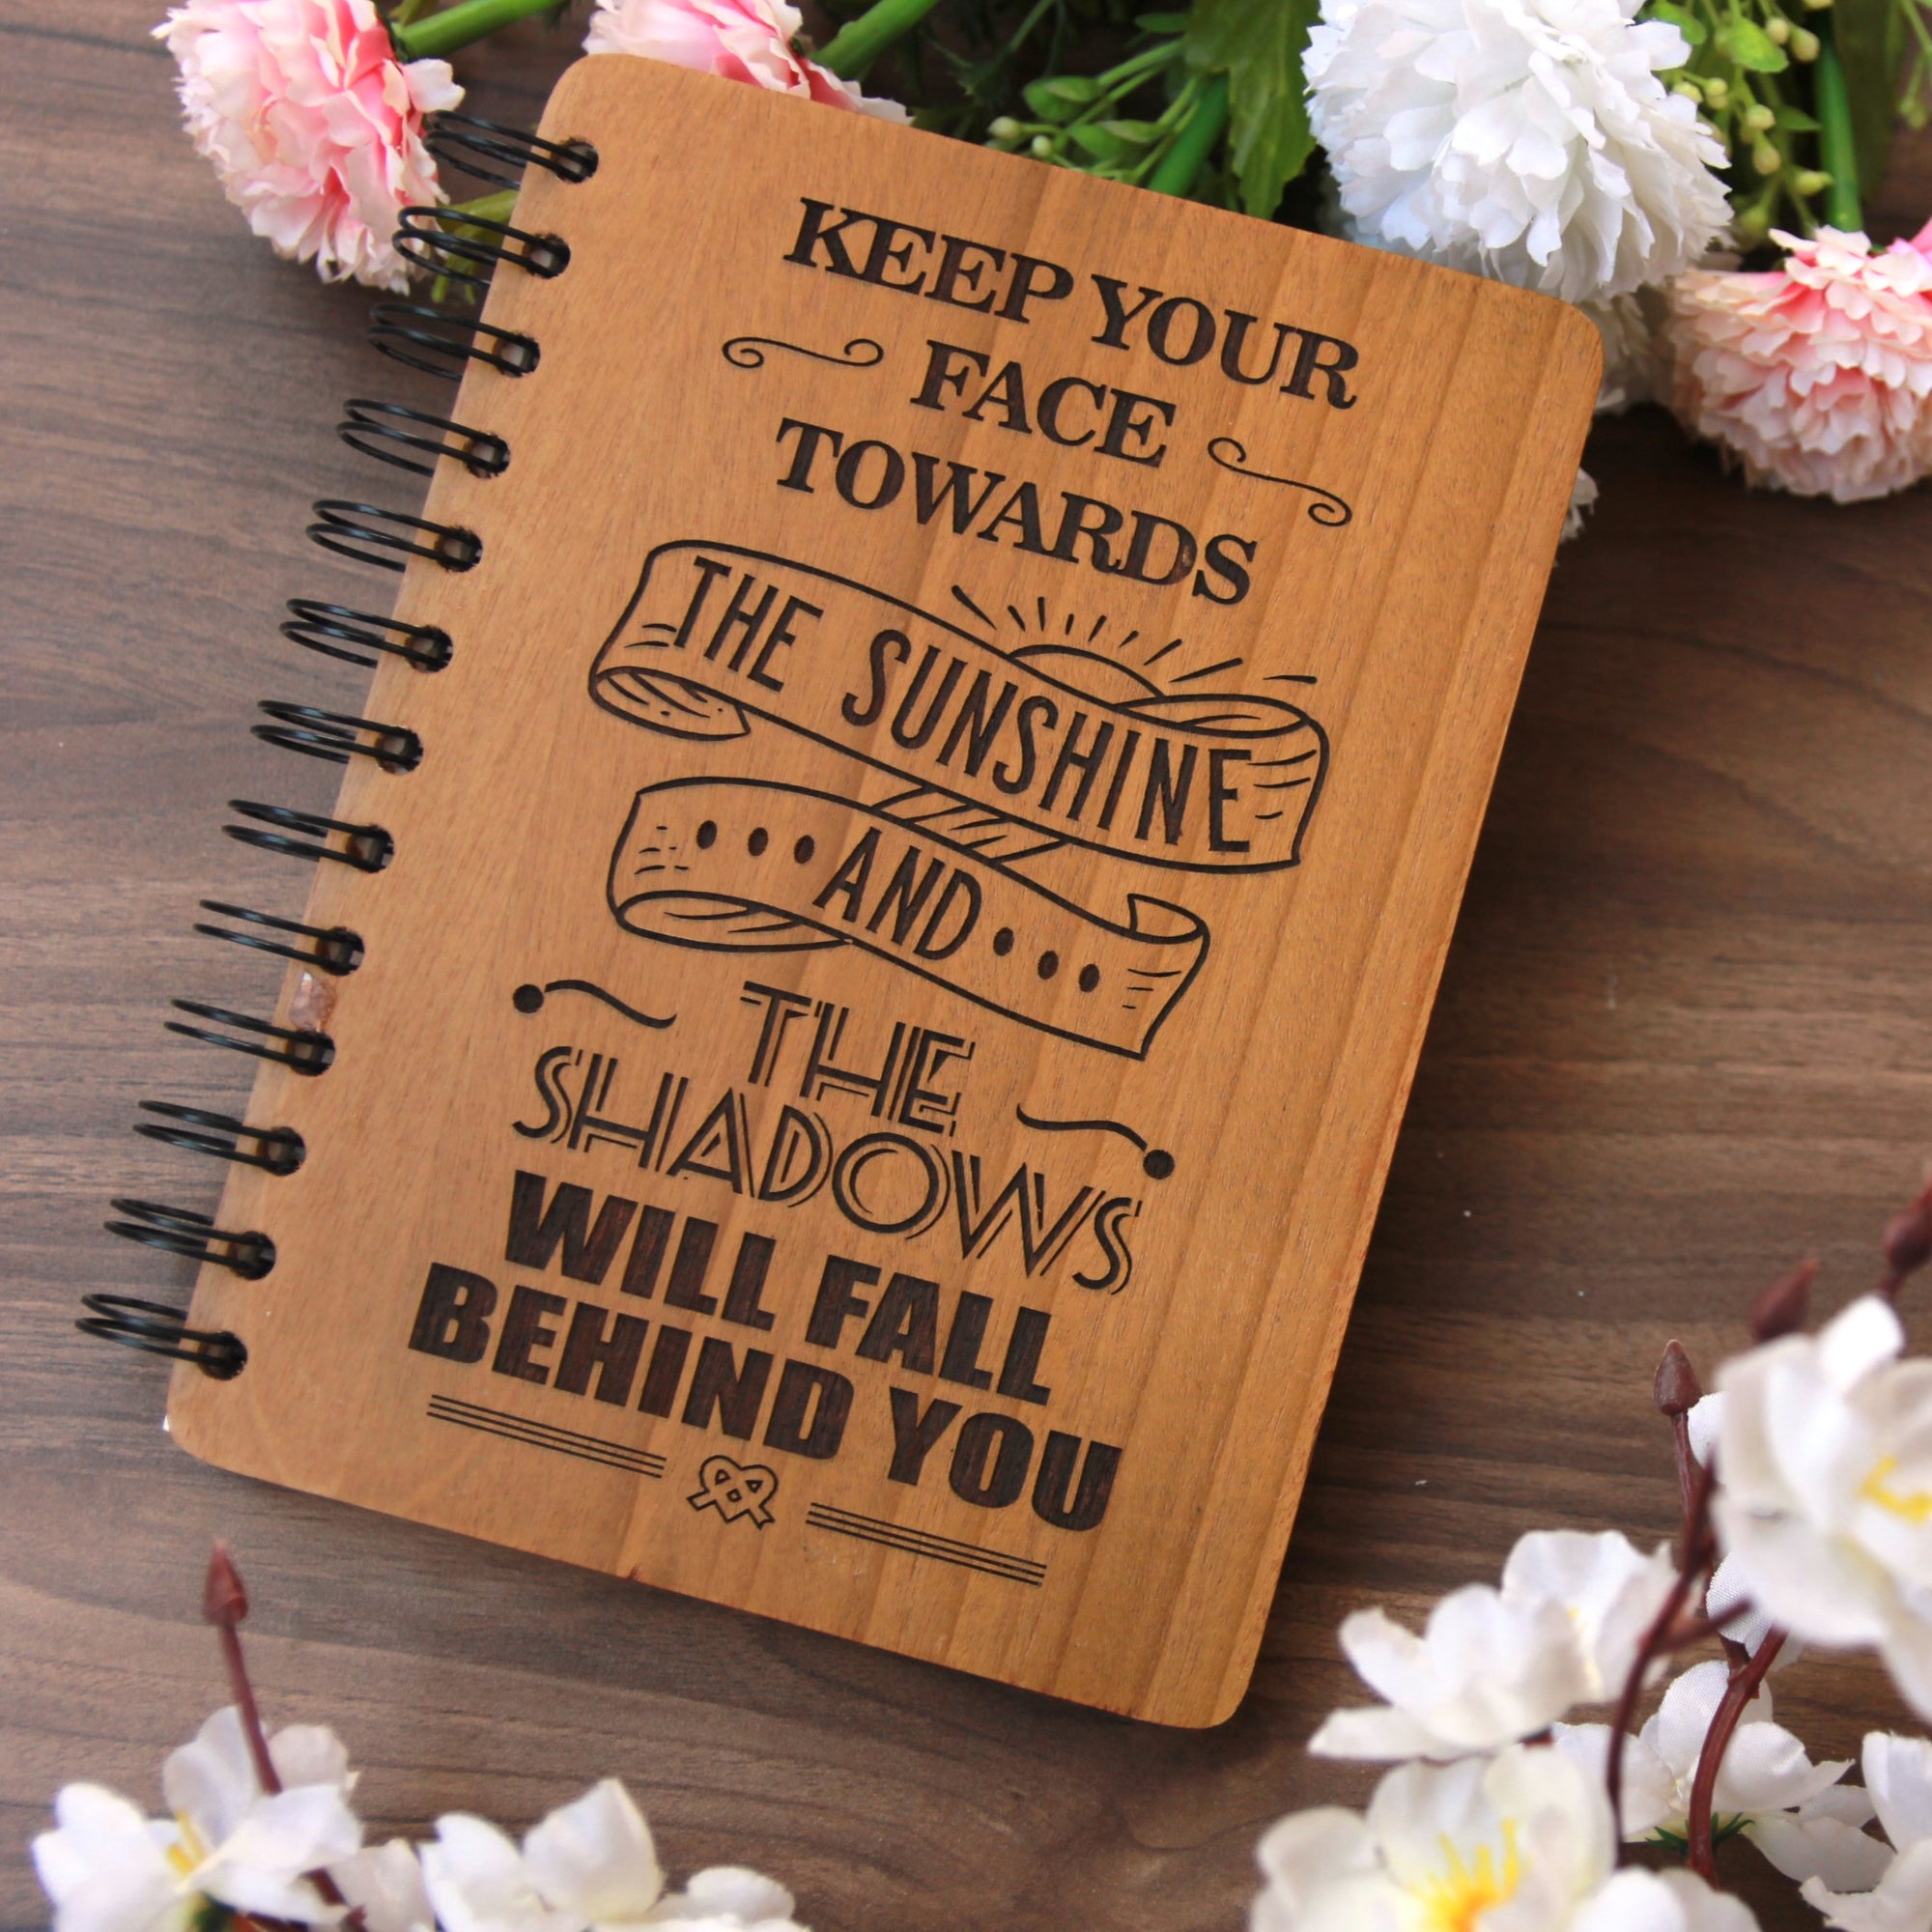 KEEP YOUR
FACE
TOWARDS
THE SUNSHINE
AND
THE
SHADOWS
WILL FALL
BEHIND YOU